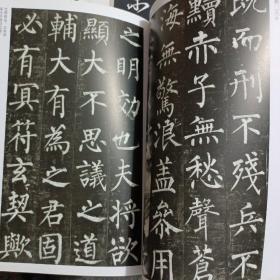 既而刑不殘兵不
黷赤子無愁聲蒼
海無驚浪盖叅用
之明効也夫將欲
顯大不思議之道
輔大有為之君固
必有冥符玄契歟